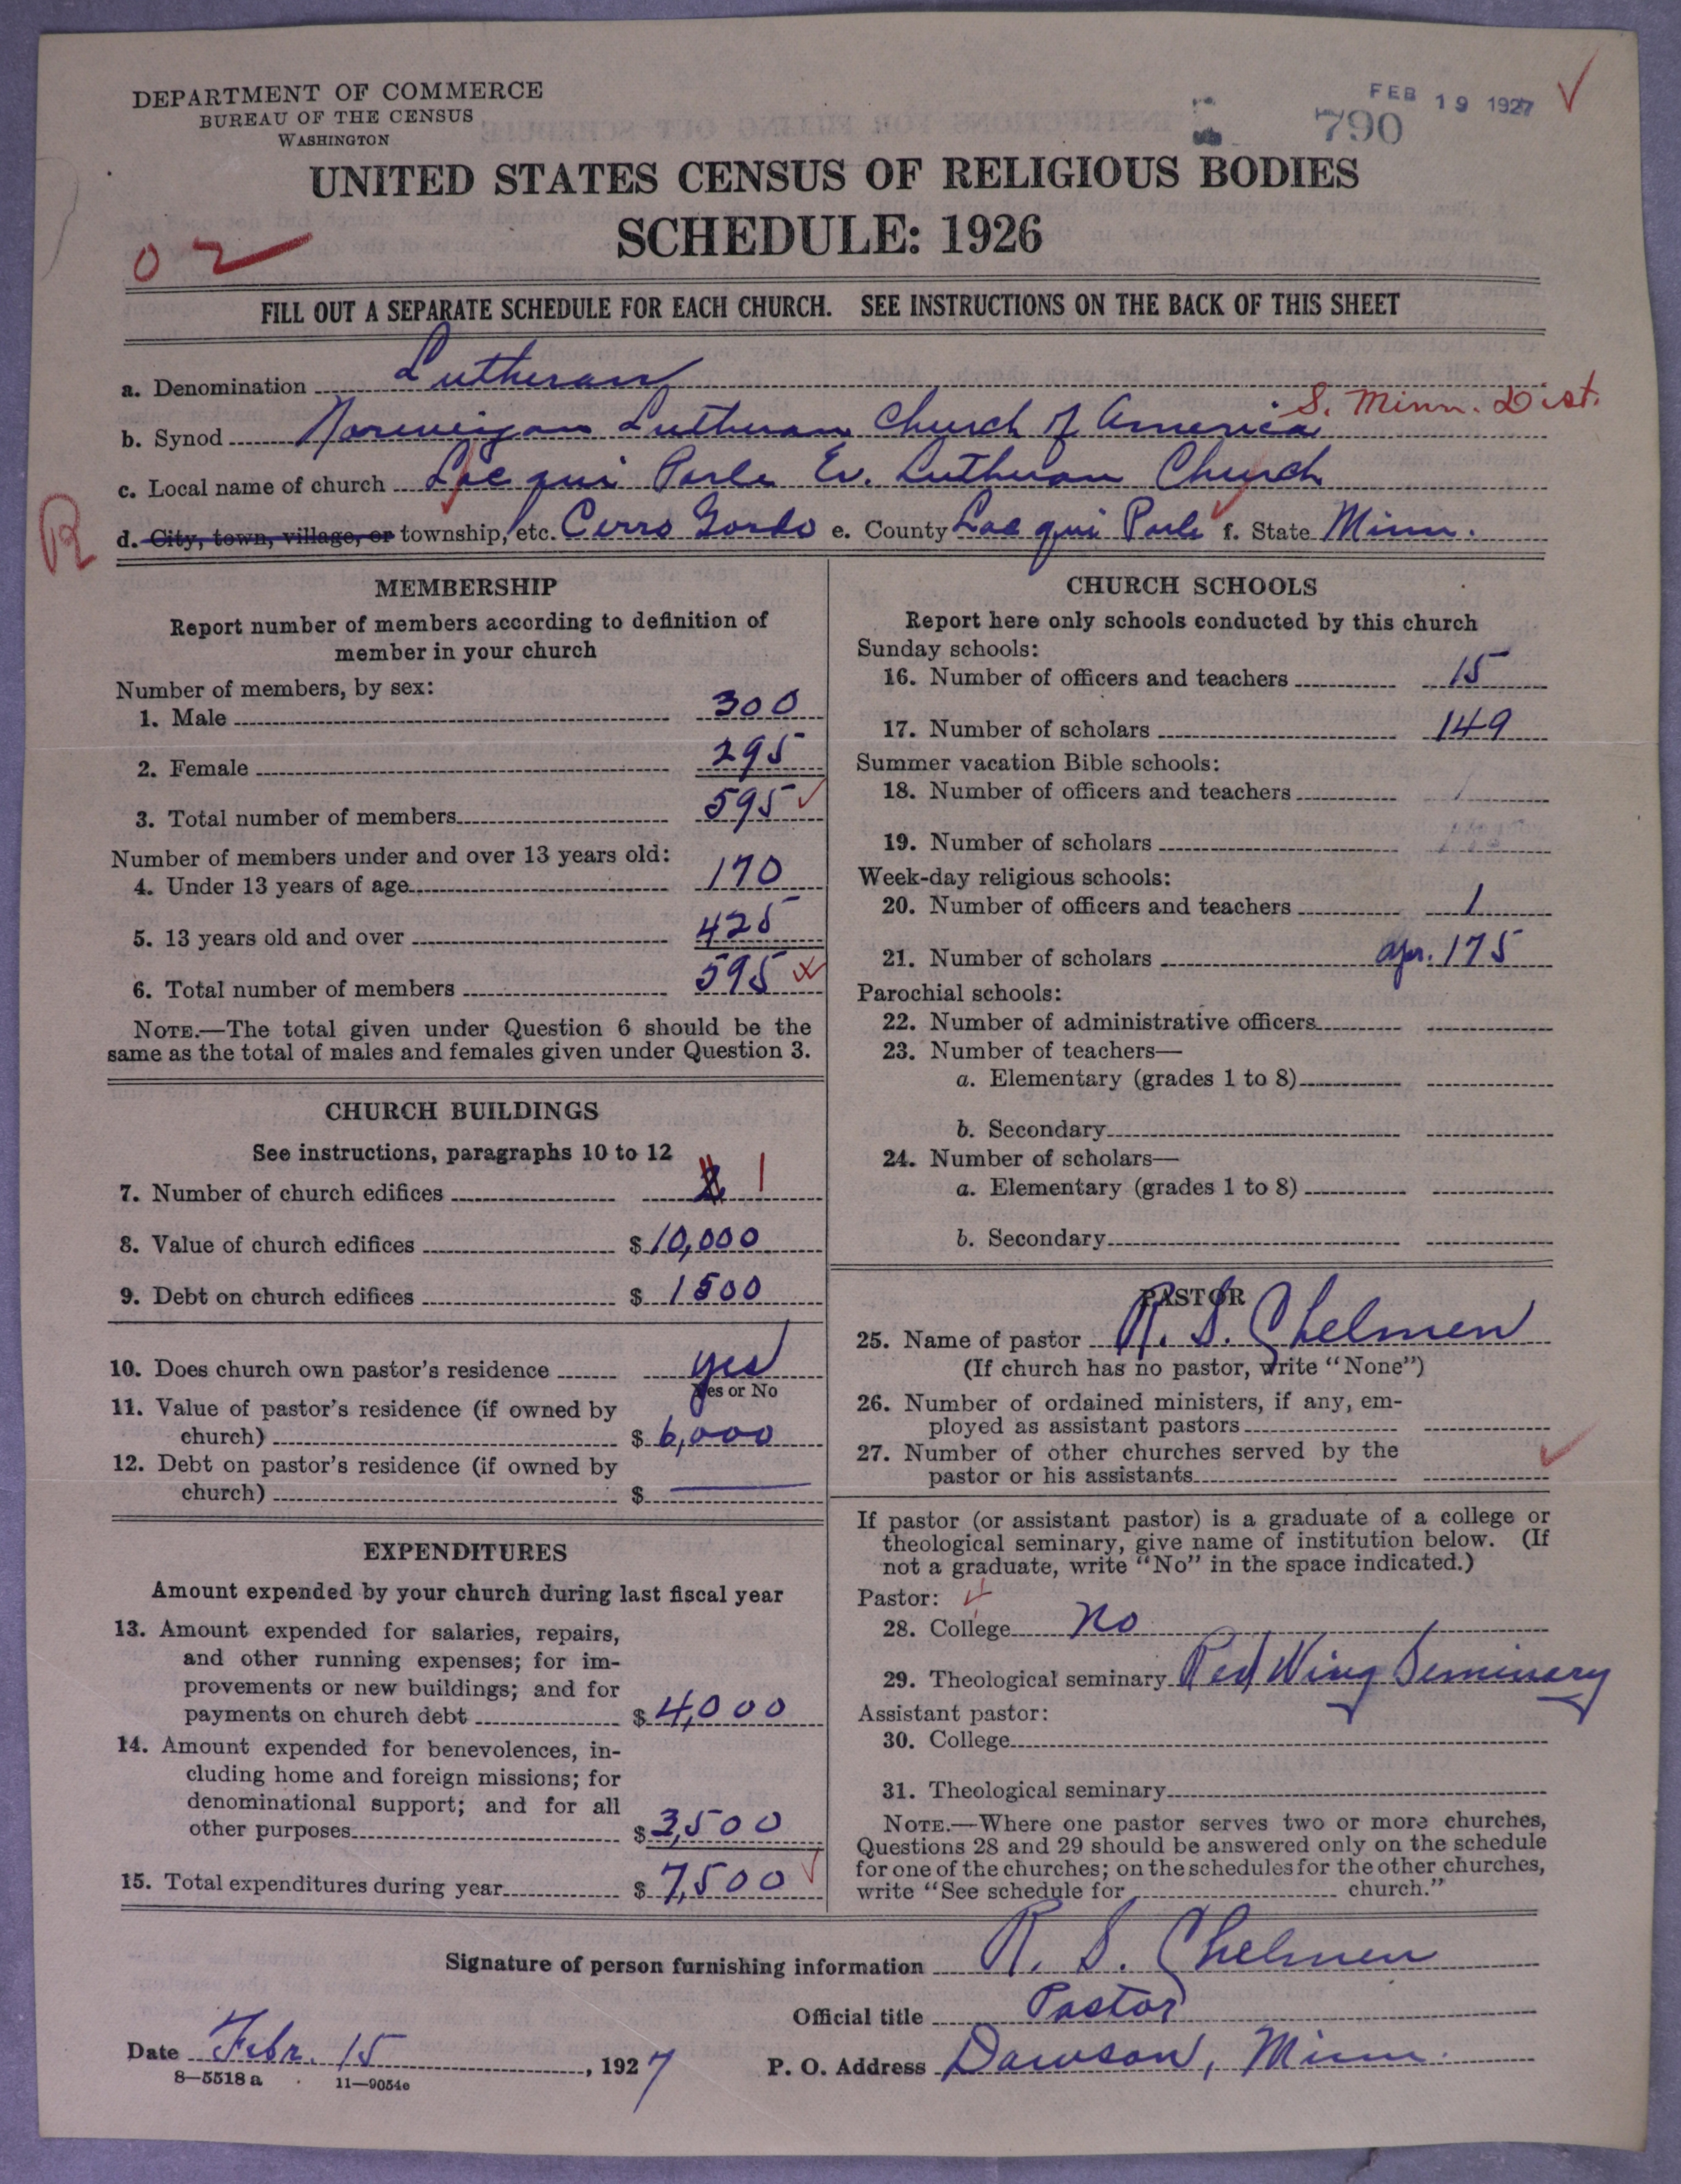 DEPARTMENT OF COMMERCE
BUREAU OF THE CENSUS
WASHINGTON
FEB 19 1927
790
UNITED STATES CENSUS OF RELIGIOUS BODIES
SCHEDULE: 1926
02
FILL OUT A SEPARATE SCHEDULE FOR EACH CHURCH. SEE INSTRUCTIONS ON THE BACK OF THIS SHEET
a. Denomination Lutheran
S. Minn. Dist.
b. Synod Norwegian Lutheran Church of America
c. Local name of church Lac qui Parle Ev. Lutheran Church
R
d. City, town, village, or township, etc. Cerro Gordo e. County Lac qui Parle f. State Minn.
MEMBERSHIP
Report number of members according to definition of
member in your church
Number of members, by sex:
1. Male 300
2. Female 295
3. Total number of members 595
Number of members under and over 13 years old:
4. Under 13 years of age 170
5. 13 years old and over 425
6. Total number of members 595
NOTE.—The total given under Question 6 should be the
same as the total of males and females given under Question 3.
CHURCH BUILDINGS
See instructions, paragraphs 10 to 12
7. Number of church edifices 2 1
8. Value of church edifices $ 10,000
9. Debt on church edifices $ 1500
10. Does church own pastor's residence yes
Yes or No
11. Value of pastor's residence (if owned by
church) $ 6,000
12. Debt on pastor's residence (if owned by
church) $
EXPENDITURES
Amount expended by your church during last fiscal year
13. Amount expended for salaries, repairs,
and other running expenses; for im-
provements or new buildings; and for
payments on church debt $ 4,000
14. Amount expended for benevolences, in-
cluding home and foreign missions; for
denominational support; and for all
other purposes $ 3,500
15. Total expenditures during year $ 7,500
CHURCH SCHOOLS
Report here only schools conducted by this church
Sunday schools:
16. Number of officers and teachers 15
17. Number of scholars 149
Summer vacation Bible schools:
18. Number of officers and teachers
19. Number of scholars
Week-day religious schools:
20. Number of officers and teachers 1
21. Number of scholars apr. 175
Parochial schools:
22. Number of administrative officers
23. Number of teachers—
a. Elementary (grades 1 to 8)
b. Secondary
24. Number of scholars—
a. Elementary (grades 1 to 8)
b. Secondary
PASTOR
25. Name of pastor R. S. Chelmen
(If church has no pastor, write "None")
26. Number of ordained ministers, if any, em-
ployed as assistant pastors
27. Number of other churches served by the
pastor or his assistants
If pastor (or assistant pastor) is a graduate of a college or
theological seminary, give name of institution below. (If
not a graduate, write "No" in the space indicated.)
Pastor:
28. College No
29. Theological seminary Red Wing Seminary
Assistant pastor:
30. College
31. Theological seminary
NOTE.—Where one pastor serves two or more churches,
Questions 28 and 29 should be answered only on the schedule
for one of the churches; on the schedules for the other churches,
write "See schedule for church."
Signature of person furnishing information R. S. Chelmen
Official title Pastor
Date Febr. 15, 1927 P. O. Address Dawson, Minn.
8—5518 a 11—9054c